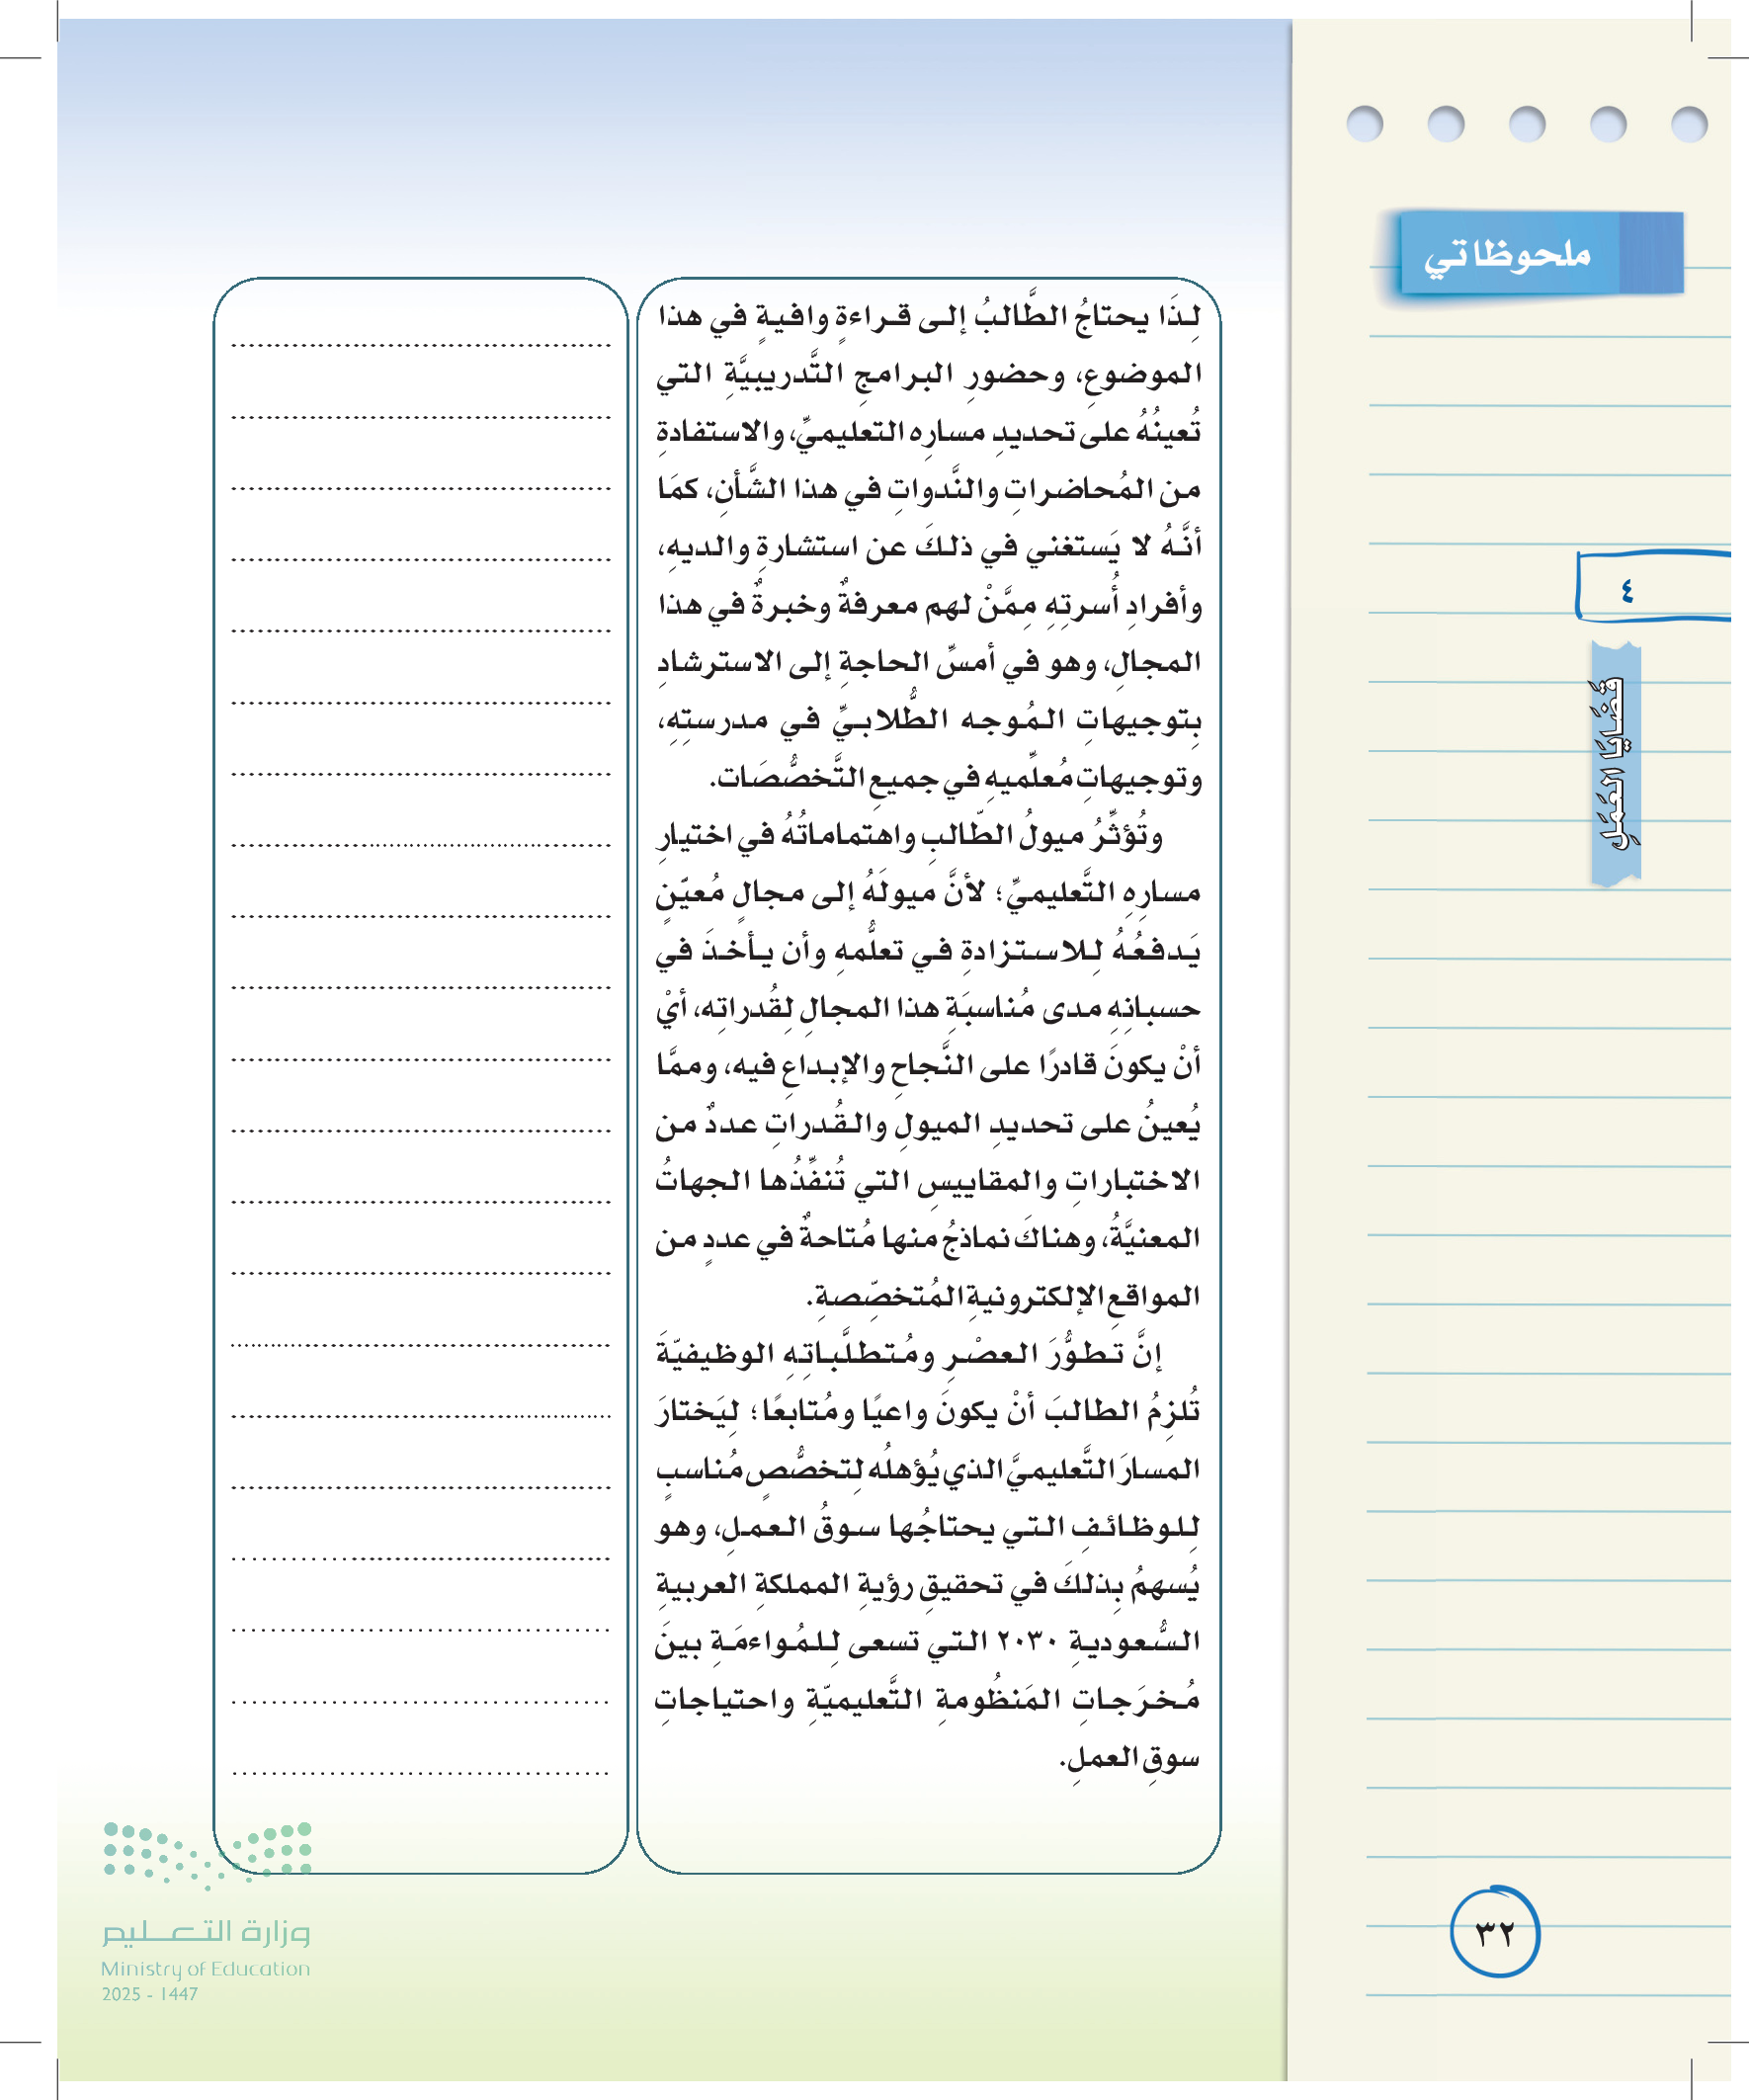 ملحوظاتي
٤
قَضَايَا العَمَلِ
لِذَا يحتاجُ الطَّالبُ إلى قراءةٍ وافيةٍ في هذا
الموضوعِ، وحضورِ البرامجِ التَّدريبيَّةِ التي
تُعينُهُ على تحديدِ مسارِه التعليميِّ، والاستفادةِ
من المُحاضراتِ والنَّدواتِ في هذا الشَّأنِ، كمَا
أنَّهُ لا يَستغني في ذلكَ عن استشارةِ والديهِ،
وأفرادِ أُسرتِهِ مِمَّنْ لهم معرفةٌ وخبرةٌ في هذا
المجالِ، وهو في أمسِّ الحاجةِ إلى الاسترشادِ
بِتوجيهاتِ المُوجه الطُّلابيِّ في مدرستِهِ،
وتوجيهاتِ مُعلِّميهِ في جميعِ التَّخصُّصَات.
وتُؤثِّرُ ميولُ الطّالبِ واهتماماتُهُ في اختيارِ
مسارِهِ التَّعليميِّ؛ لأنَّ ميولَهُ إلى مجالٍ مُعيّنٍ
يَدفعُهُ لِلاستزادةِ في تعلُّمهِ وأن يأخذَ في
حسبانِهِ مدى مُناسبَةِ هذا المجالِ لِقُدراتِه، أيْ
أنْ يكونَ قادرًا على النَّجاحِ والإبداعِ فيه، وممَّا
يُعينُ على تحديدِ الميولِ والقُدراتِ عددٌ من
الاختباراتِ والمقاييسِ التي تُنفِّذُها الجهاتُ
المعنيَّةُ، وهناكَ نماذجُ منها مُتاحةٌ في عددٍ من
المواقعِ الإلكترونيةِ المُتخصِّصةِ.
إنَّ تطوُّرَ العصْرِ ومُتطلَّباتِهِ الوظيفيّةَ
تُلزِمُ الطالبَ أنْ يكونَ واعيًا ومُتابعًا؛ لِيَختارَ
المسارَ التَّعليميَّ الذي يُؤهلُه لِتخصُّصٍ مُناسبٍ
لِلوظائفِ التي يحتاجُها سوقُ العملِ، وهو
يُسهمُ بِذلكَ في تحقيقِ رؤيةِ المملكةِ العربيةِ
السُّعوديةِ ٢٠٣٠ التي تسعى لِلمُواءمَةِ بينَ
مُخرَجاتِ المَنظُومةِ التَّعليميّةِ واحتياجاتِ
سوقِ العملِ.
٣٢
وزارة التعليم
Ministry of Education
2025 - 1447